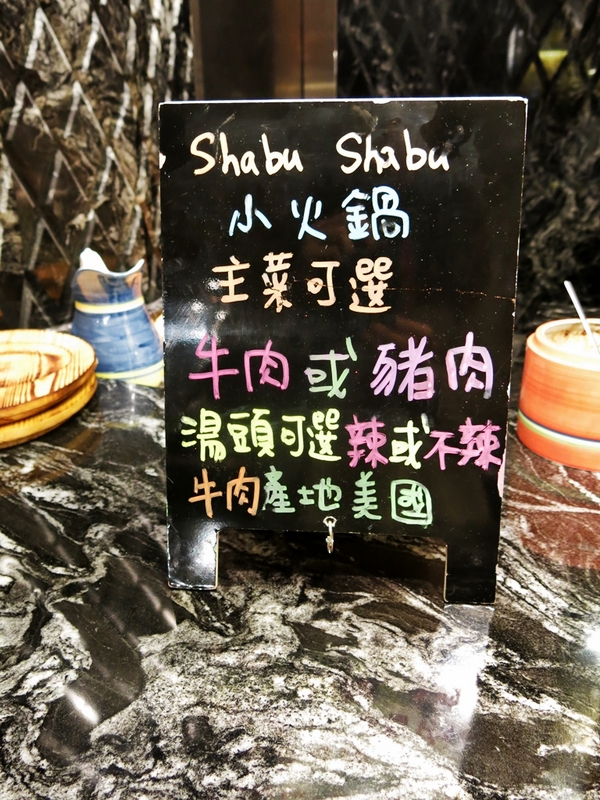 Shabu Shabu
小火鍋
主菜可選
牛肉或豬肉
湯頭可選辣或不辣
牛肉產地美國